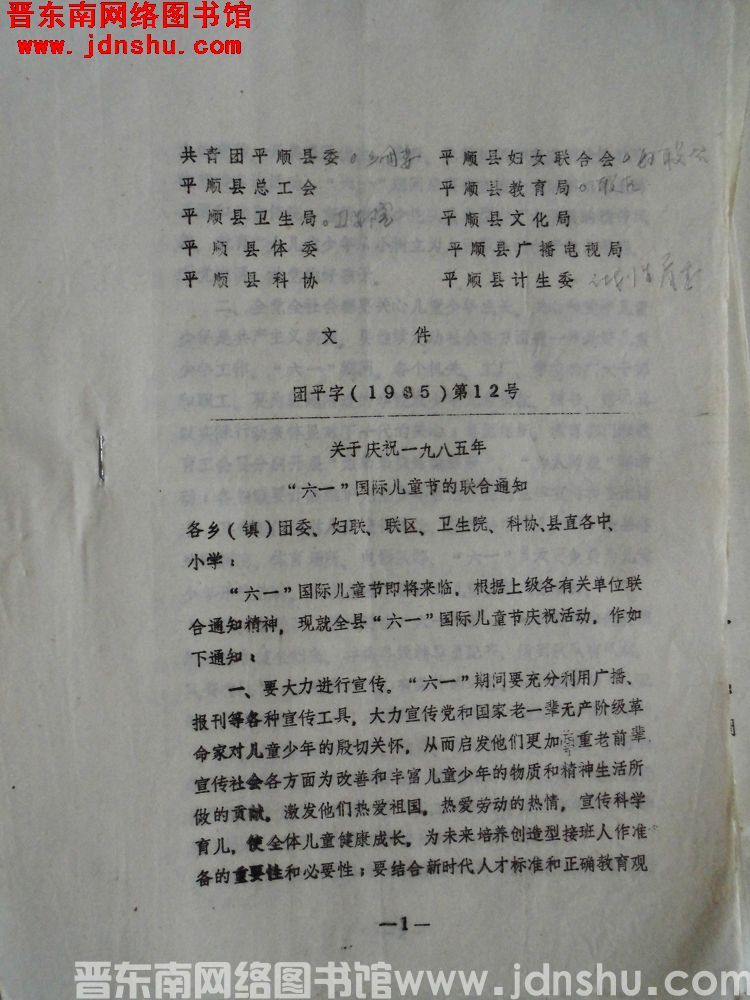 晋东南网络图书馆
www.jdnshu.com
共青团平顺县委 平顺县妇女联合会
平顺县总工会 平顺县教育局
平顺县卫生局 平顺县文化局
平顺县体委 平顺县广播电视局
平顺县科协 平顺县计生委
文件
团平字(1985)第12号
关于庆祝一九八五年
“六一”国际儿童节的联合通知
各乡(镇)团委、妇联、联区、卫生院、科协、县直各中、
小学:
“六一”国际儿童节即将来临,根据上级各有关单位联
合通知精神,现就全县“六一”国际儿童节庆祝活动,作如
下通知:
一、要大力进行宣传。“六一”期间要充分利用广播、
报刊等各种宣传工具,大力宣传党和国家老一辈无产阶级革
命家对儿童少年的殷切关怀,从而启发他们更加尊重老前辈
宣传社会各方面为改善和丰富儿童少年的物质和精神生活所
做的贡献,激发他们热爱祖国,热爱劳动的热情,宣传科学
育儿,使全体儿童健康成长,为未来培养创造型接班人作准
备的重要性和必要性;要结合新时代人才标准和正确教育观
—1—
晋东南网络图书馆www.jdnshu.com